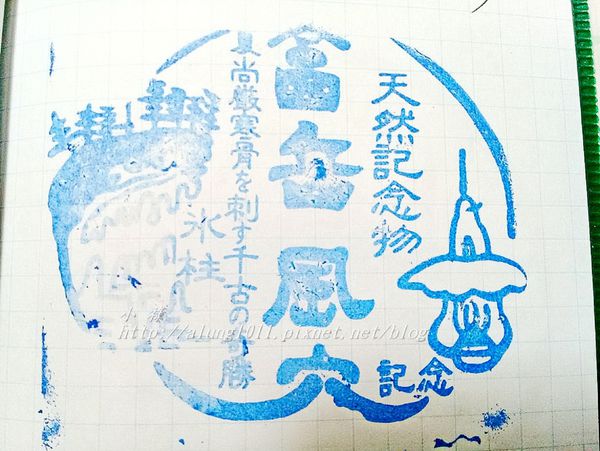 天然記念物
富岳風穴
夏尚厳寒骨を刺す千古の奇勝
氷柱
記念
http://alung1011.pixnet.net/blog